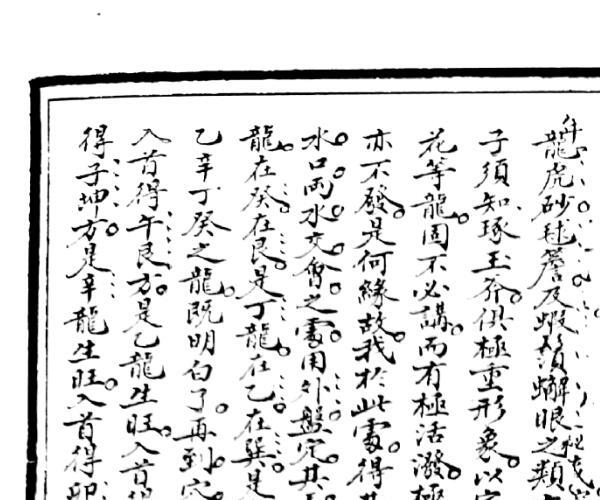 龍虎砂毬簷及蝦鬚蠏眼之類
子須知琢玉斧俱極重形象以定
花等龍固不必講而有極活潑極
亦不發是何緣故我於此處得其
水口兩水交會之處用外盤定其
龍在癸在艮是丁龍在乙在巽是
乙辛丁癸之龍既明白了再到穴
入首得午艮方是乙龍生旺入首得
得子坤方是辛龍生旺入首得卯